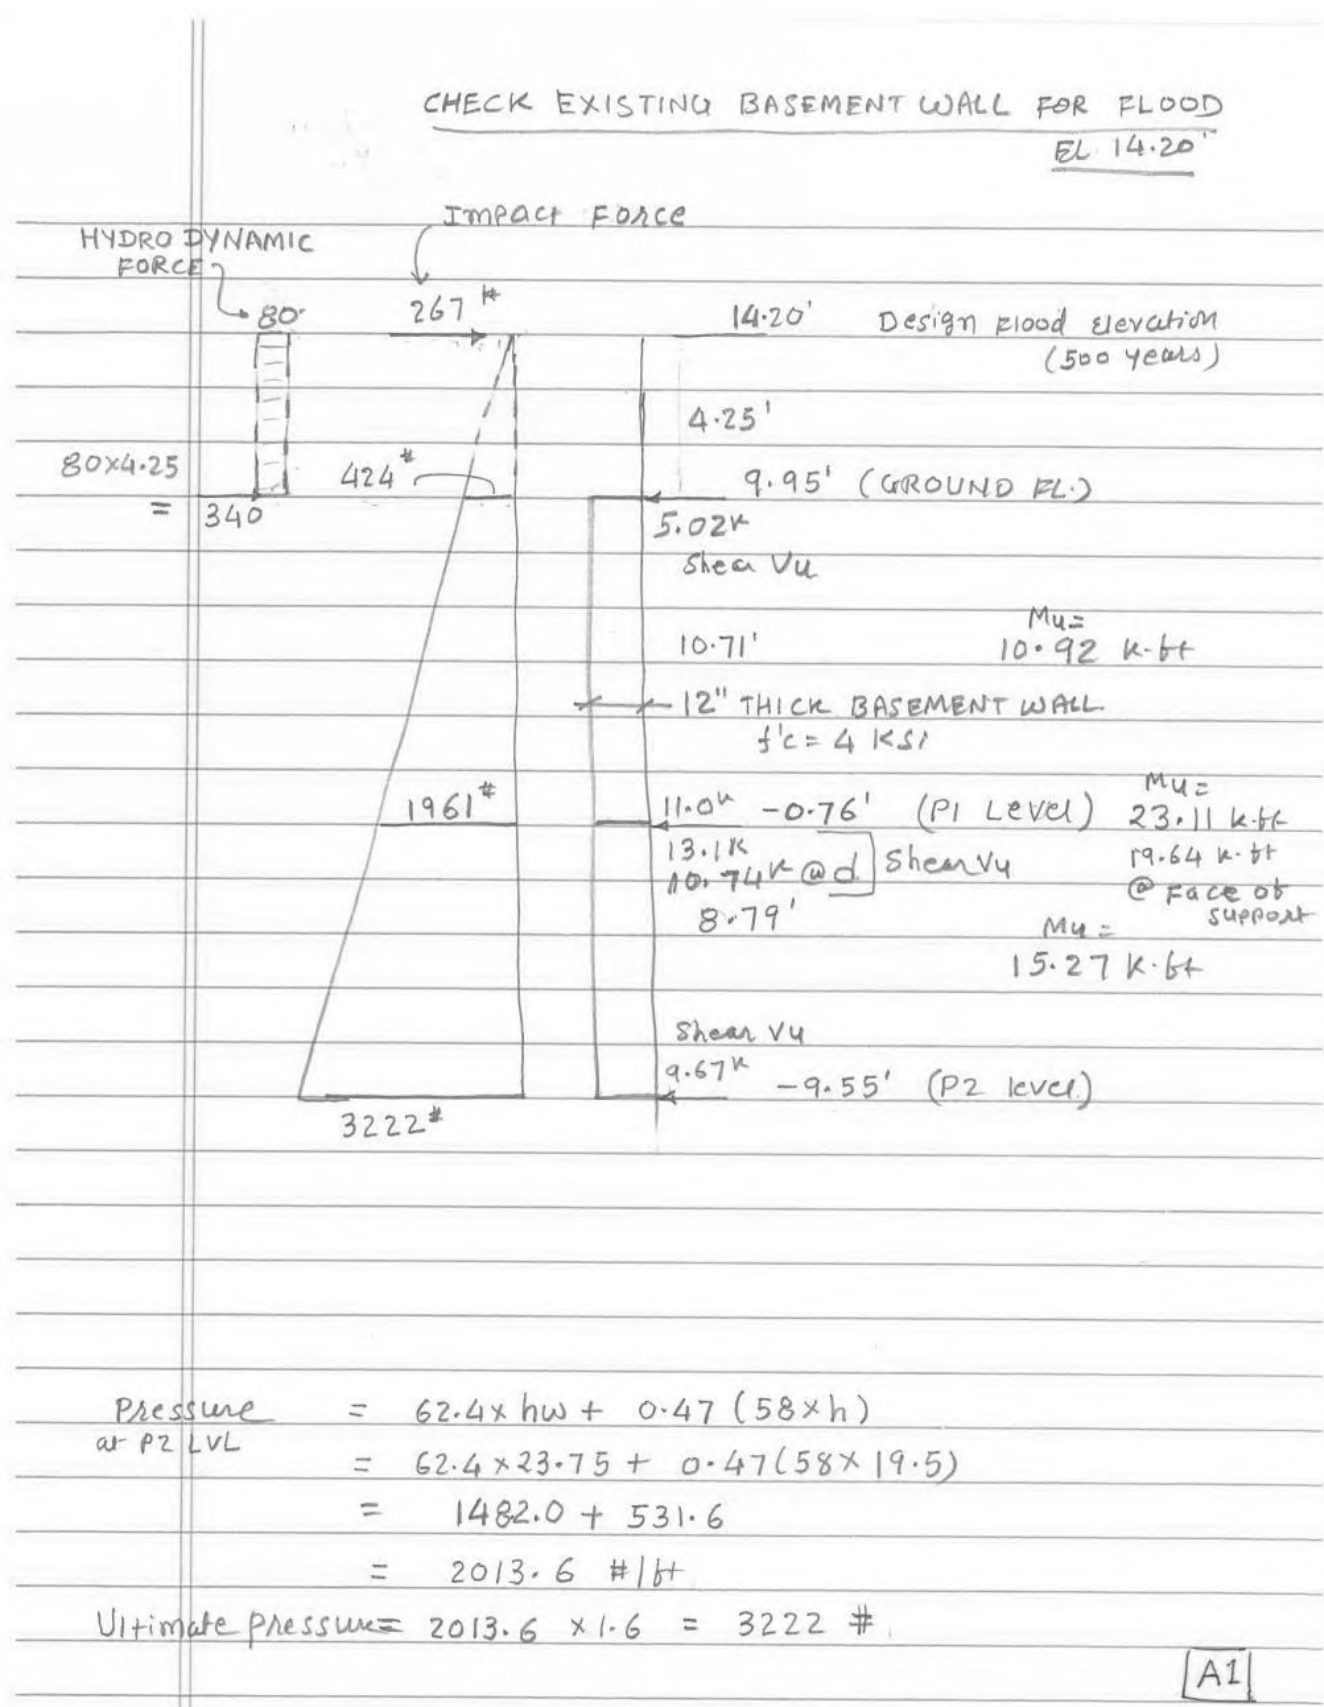 CHECK EXISTING BASEMENT WALL FOR FLOOD
EL 14.20'
Impact Force
HYDRO DYNAMIC
FORCE
80
267 #
14.20' Design Flood Elevation
(500 years)
4.25'
80x4.25
= 340
424 #
9.95' (GROUND FL.)
5.02K
Shear Vu
Mu=
10.71' 10.92 k-ft
12" THICK BASEMENT WALL
f'c = 4 KSI
1961 #
11.0K -0.76' (P1 Level)
Mu=
23.11 k-ft
13.1K
10.74K @ d Shear Vu
19.64 k-ft
@ Face of
support
8.79'
Mu =
15.27 k-ft
Shear Vu
9.67K -9.55' (P2 level)
3222 #
Pressure = 62.4 x hw + 0.47 (58 x h)
at P2 LVL
= 62.4 x 23.75 + 0.47(58 x 19.5)
= 1482.0 + 531.6
= 2013.6 #/ft
Ultimate pressure = 2013.6 x 1.6 = 3222 #
A1